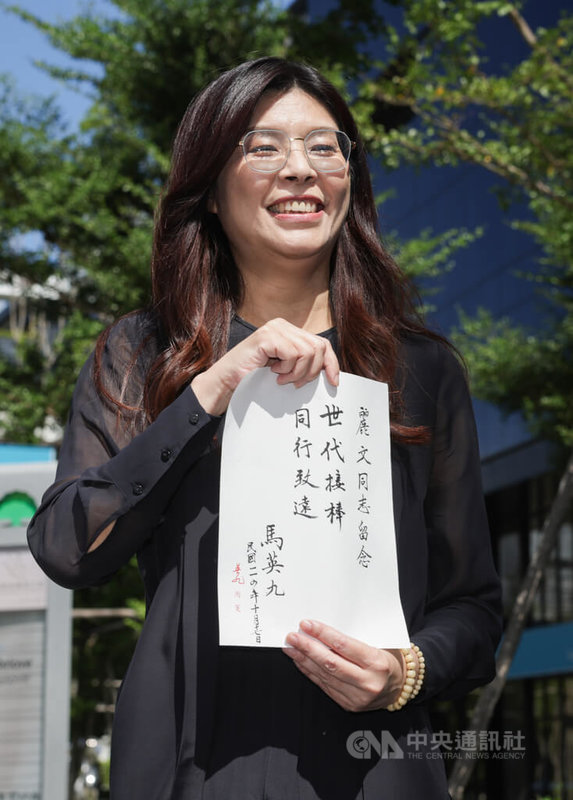 麗文同志留念
世代接棒
同行致遠
馬英九
民國一一四年十月廿七日
中央通訊社
THE CENTRAL NEWS AGENCY